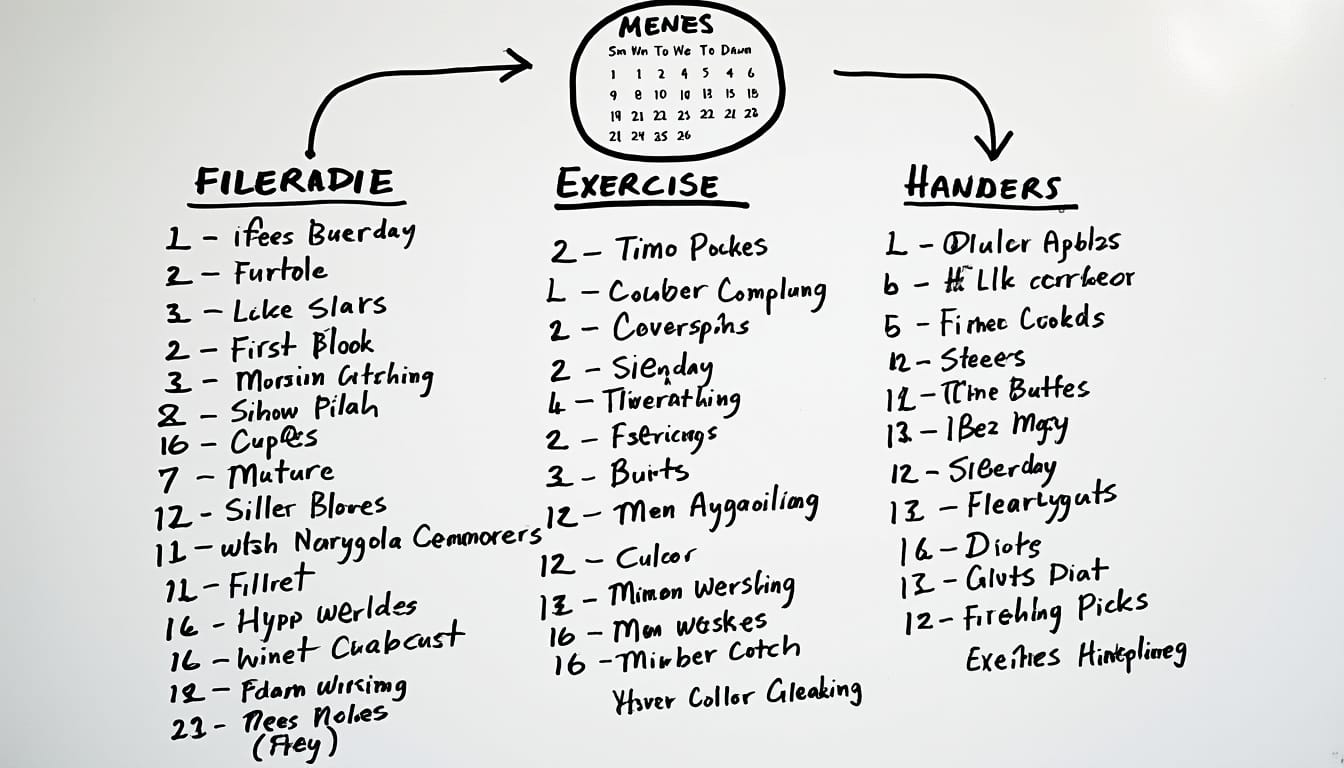 MENES
Sm Wn To We To Dawn
1 1 2 4 5 4 6
9 8 10 10 13 15 15
19 21 22 23 22 21 22
21 24 25 26
FILERADIE
1 - ifees Buerday
2 - Furtole
3 - Like Slars
2 - First Blook
3 - Morsiun Catching
2 - Sihow Pilah
16 - Cuples
7 - Mature
12 - Siller Blowes
11 - wlsh Narygola Cemmorers
11 - Fillret
16 - Hypp werldes
16 - winet Cuabcust
12 - Fdam wirsimg
23 - Nees Noles
(Frey)
EXERCISE
2 - Timo Pockes
L - Coulber Complung
2 - Coverspihs
2 - Sienday
4 - Tliverathing
2 - Fsericngs
3 - Buirts
12 - Men Aygaoiliang
12 - Culcor
13 - Mimon wersling
16 - Men waskes
16 - Mimber Cotch
Hover Collor Gleaking
HANDERS
L - Dlulcr Apblzs
6 - Llk corrkeor
5 - Fimec Cookds
12 - Steeers
12 - Time Buttes
13 - 1Bez Mgry
12 - Slberday
13 - Fleartyguts
16 - Diots
13 - Gluts Diat
12 - Firehlng Picks
Exeihes Hinteplineg